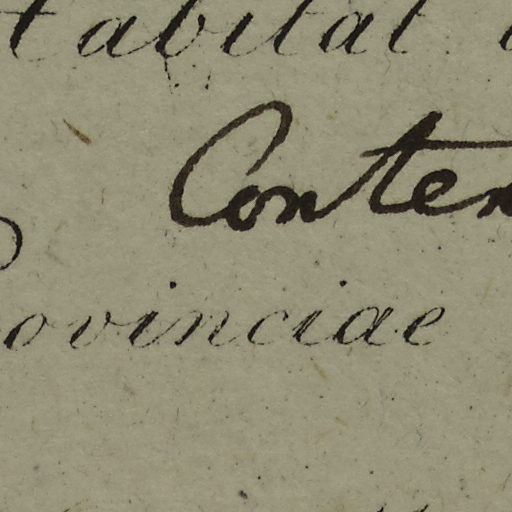 Habitat
Conten
ovinciae